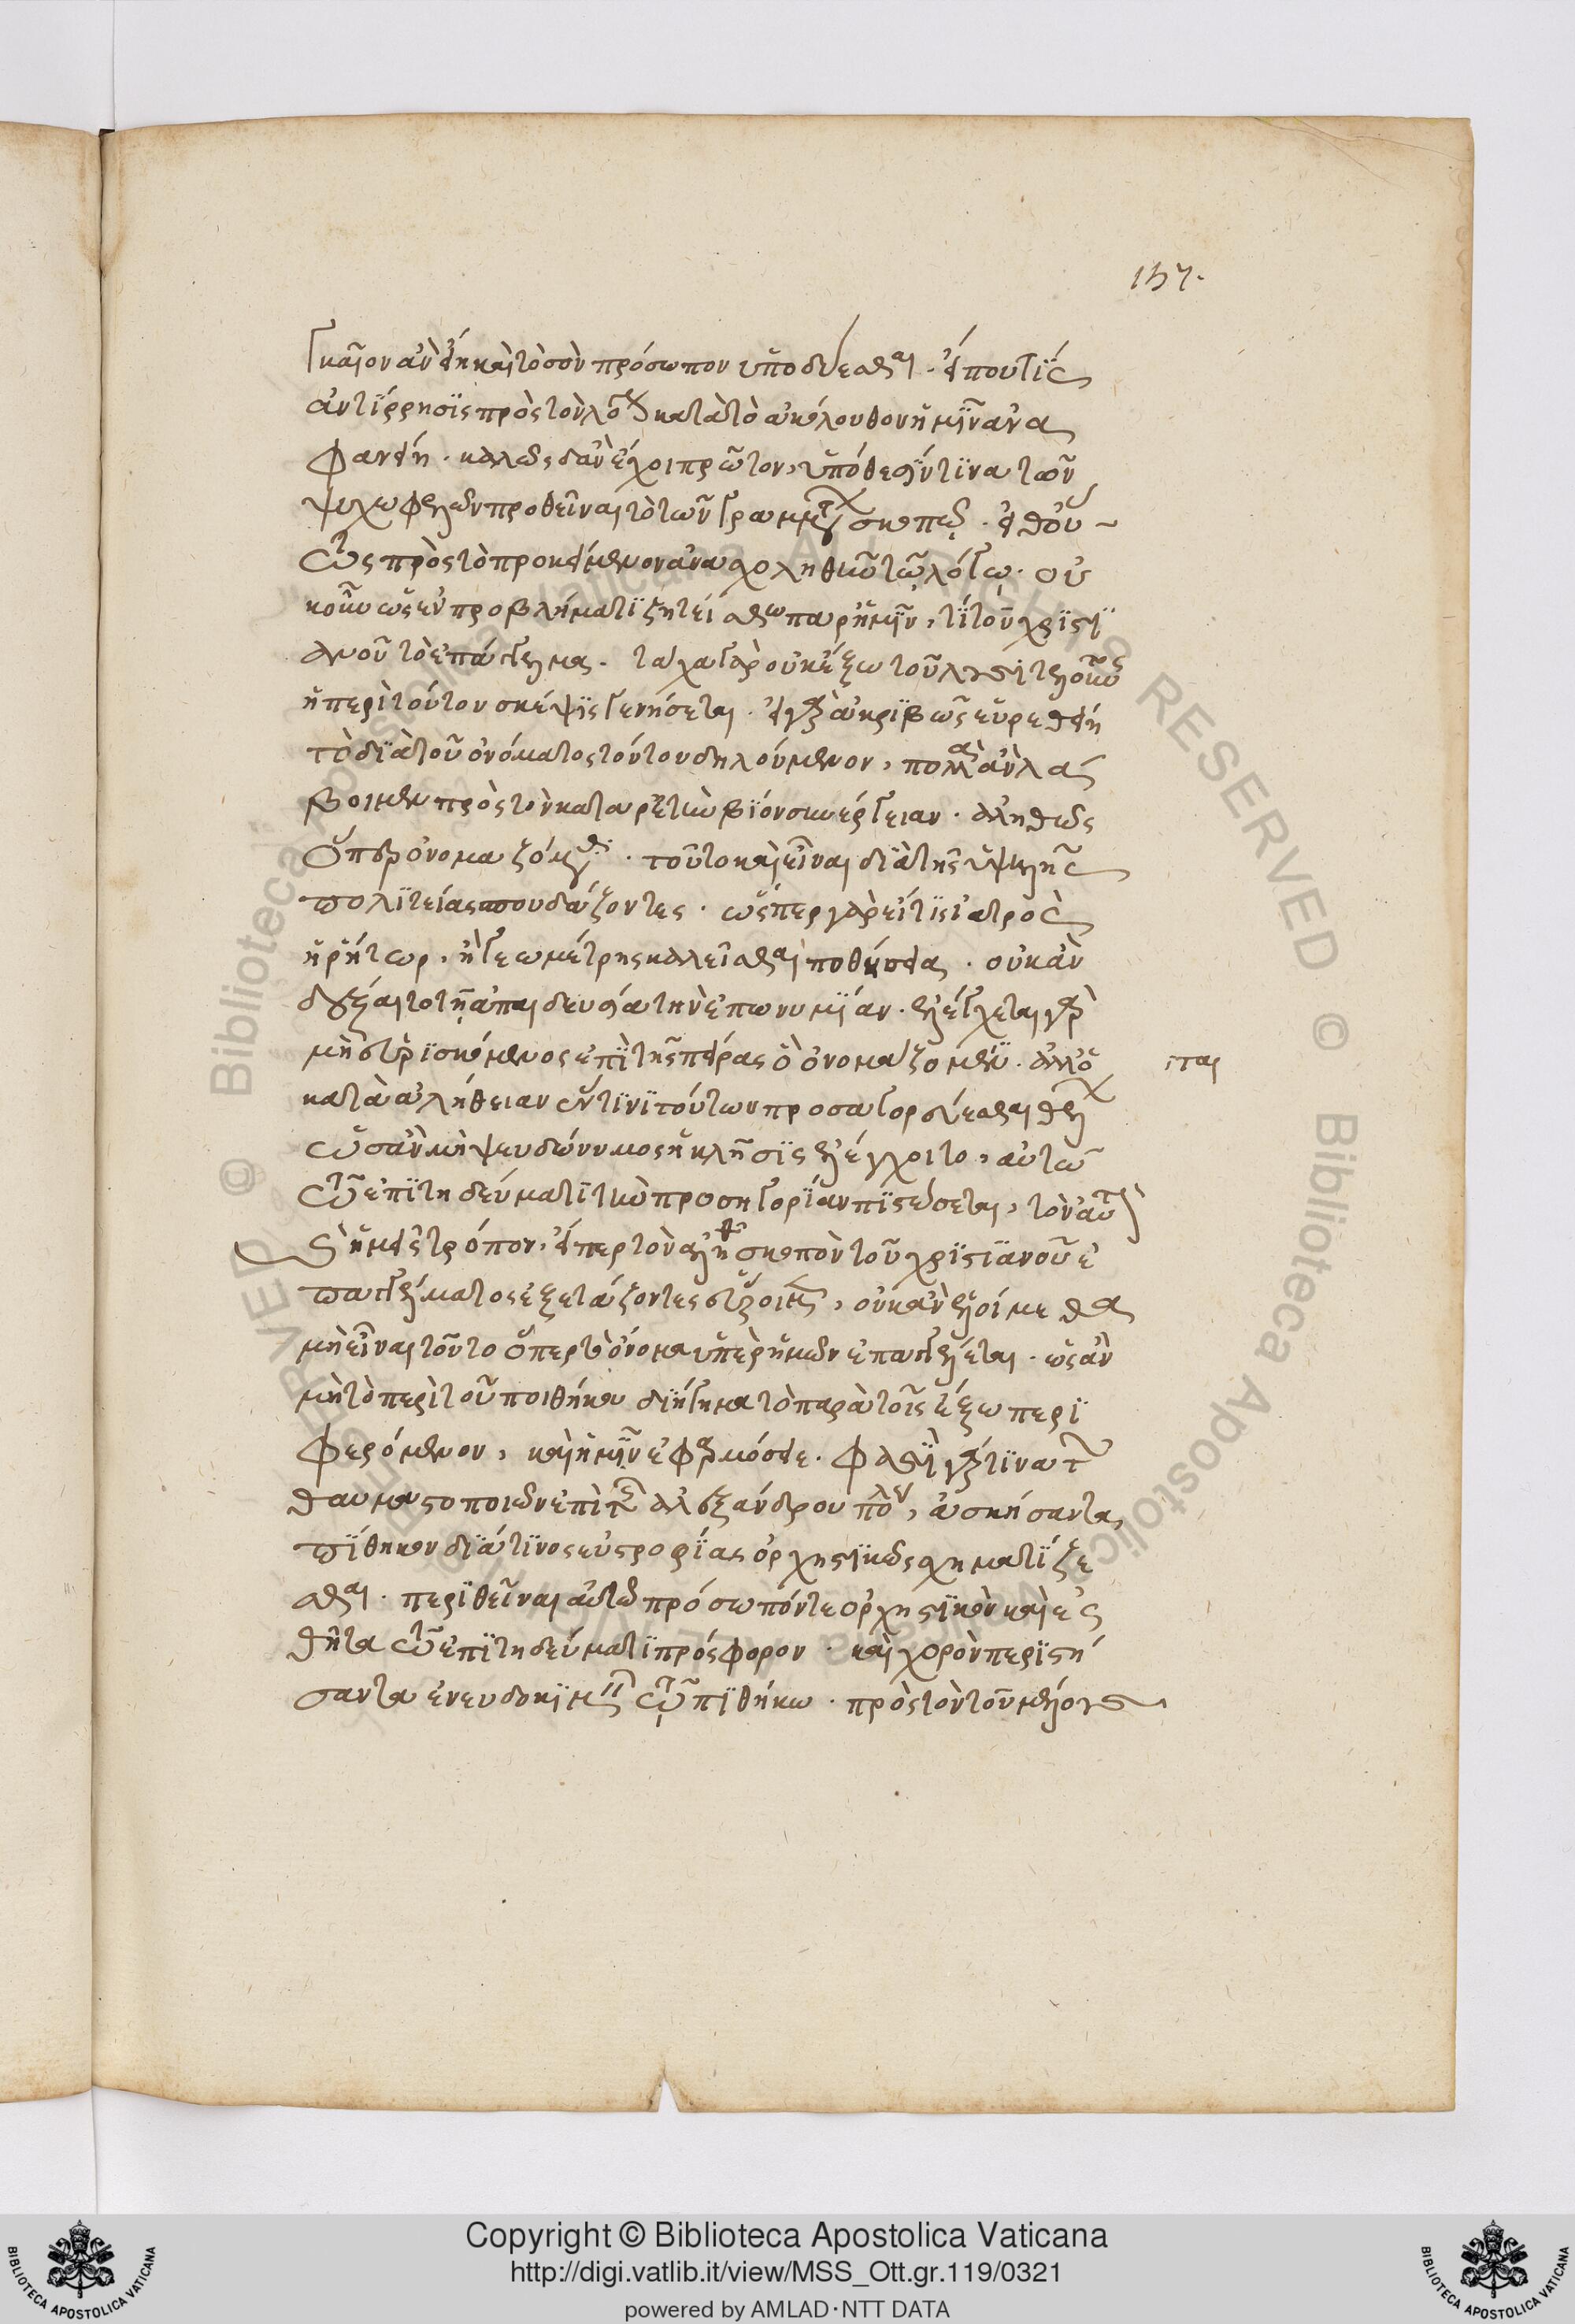 157.
γκαῖον ἂν εἴη καὶ τὸ σὸν πρόσωπον ὑποδύεσθαι. εἴπου τίς
ἀντίρρησις πρὸς τὸν λόγον κατὰ τὸ ἀκόλουθον ἡμῖν ἀνα
φανείη. καλῶς δ' ἂν ἔχοι πρῶτον, ὑπόθεσίν τινα τῶν
ψυχωφελῶν προθεῖναι τὸ τῶν γραμμάτων σκοπῶ. εἶθ' οὕ
τως πρὸς τὸ προκείμενον ἀνασχοληθῆναι τῷ λόγῳ. οὐ
κοῦν ὡς ἐν προβλήματι ζητείσθω παρ' ἡμῖν, τί τοῦ χριστι
ανοῦ τὸ ἐπάγγελμα. τάχα γὰρ οὐκ ἔξω τοῦ λυσιτελοῦντος
ἡ περὶ τούτου σκέψις γενήσεται. εἰ γὰρ ἀκριβῶς εὑρεθείη
τὸ διὰ τοῦ ὀνόματος τούτου δηλούμενον, πολλὴν ἂν λά
βοιμεν πρὸς τὸν κατ' ἀρετὴν βίον συνέργειαν. ἀληθῶς
ὅπερ ὀνομαζόμεθα. τοῦτο καὶ εἶναι διὰ τῆς ὑψηλῆς
πολιτείας σπουδάζοντες. ὥσπερ γὰρ εἴ τις ἰατρὸς
ἢ ῥήτωρ, ἢ γεωμέτρης καλεῖσθαι ποθήσειας. οὐκ ἂν
δέξαιτο τῇ ἀπαιδευσίᾳ τὴν ἐπωνυμίαν. ἐλέγχεται γὰρ
μὴ εὑρισκόμενος ἐπὶ τῆς πείρας ὃ ὀνομάζομεν. ἀλλ' ὁ
εται
κατὰ ἀλήθειαν ὅντινι τούτων προσαγορεύεσθαι θέλων
ὡς ἂν μὴ ψευδώνυμος ἡ κλῆσις ἐλέγχοιτο, αὐτῷ
τῷ ἐπιτηδεύματι τὴν προσηγορίαν πιστώσεται, τὸν αὐτὸν
καὶ ἡμεῖς τρόπον, εἴπερ τὸν ἀληθῆ σκοπὸν τοῦ χριστιανοῦ ἐ
παγγέλματος ἐξετάζοντες εὕροιμεν, οὐκ ἂν ἑλοίμεθα
μὴ εἶναι τοῦτο ὅπερ τὸ ὄνομα ὑπὲρ ἡμῶν ἐπαγγέλλεται. ὡς ἂν
μὴ τὸ περὶ τοῦ πιθήκου διήγημα τὸ παρὰ τοῖς ἔξω περι
φερόμενον, καὶ ἡμῖν ἐφαρμόσειε. φασὶ γάρ τινα τῶν
θαυματοποιῶν ἐπὶ τῆς ἀλεξάνδρου πόλεως, ἀσκήσαντα,
πίθηκον διά τινος εὐστροφίας ὀρχηστικῶς σχηματίζε
σθαι. περιθεῖναι αὐτῷ πρόσωπόν τε ὀρχηστικὸν καὶ ἐσ
θῆτα τῷ ἐπιτηδεύματι πρόσφορον. καὶ χορὸν περιστή
σαντα ἐνευδοκιμεῖν τῷ πιθήκω. πρὸς τὸν τοῦ μέλους
Copyright © Biblioteca Apostolica Vaticana
http://digi.vatlib.it/view/MSS_Ott.gr.119/0321
powered by AMLAD·NTT DATA